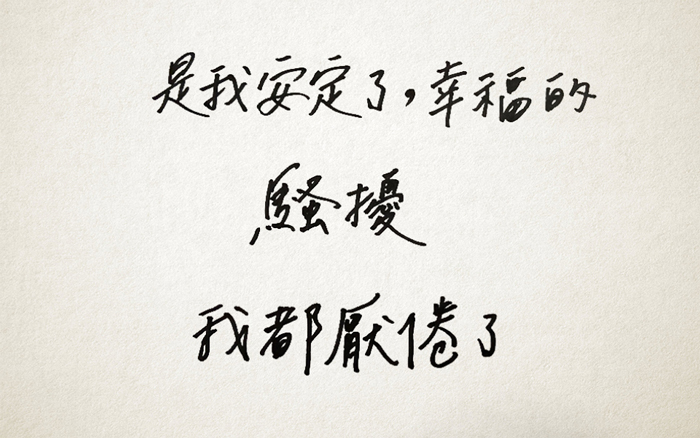 是我安定了，幸福的
騷擾
我都厭倦了